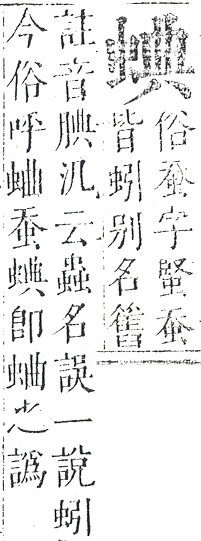 俗蚕字蜸蚕
皆蚓别名舊
註音腆汎云蟲名誤一說蚓
今俗呼蛐蚕卽蛐之譌